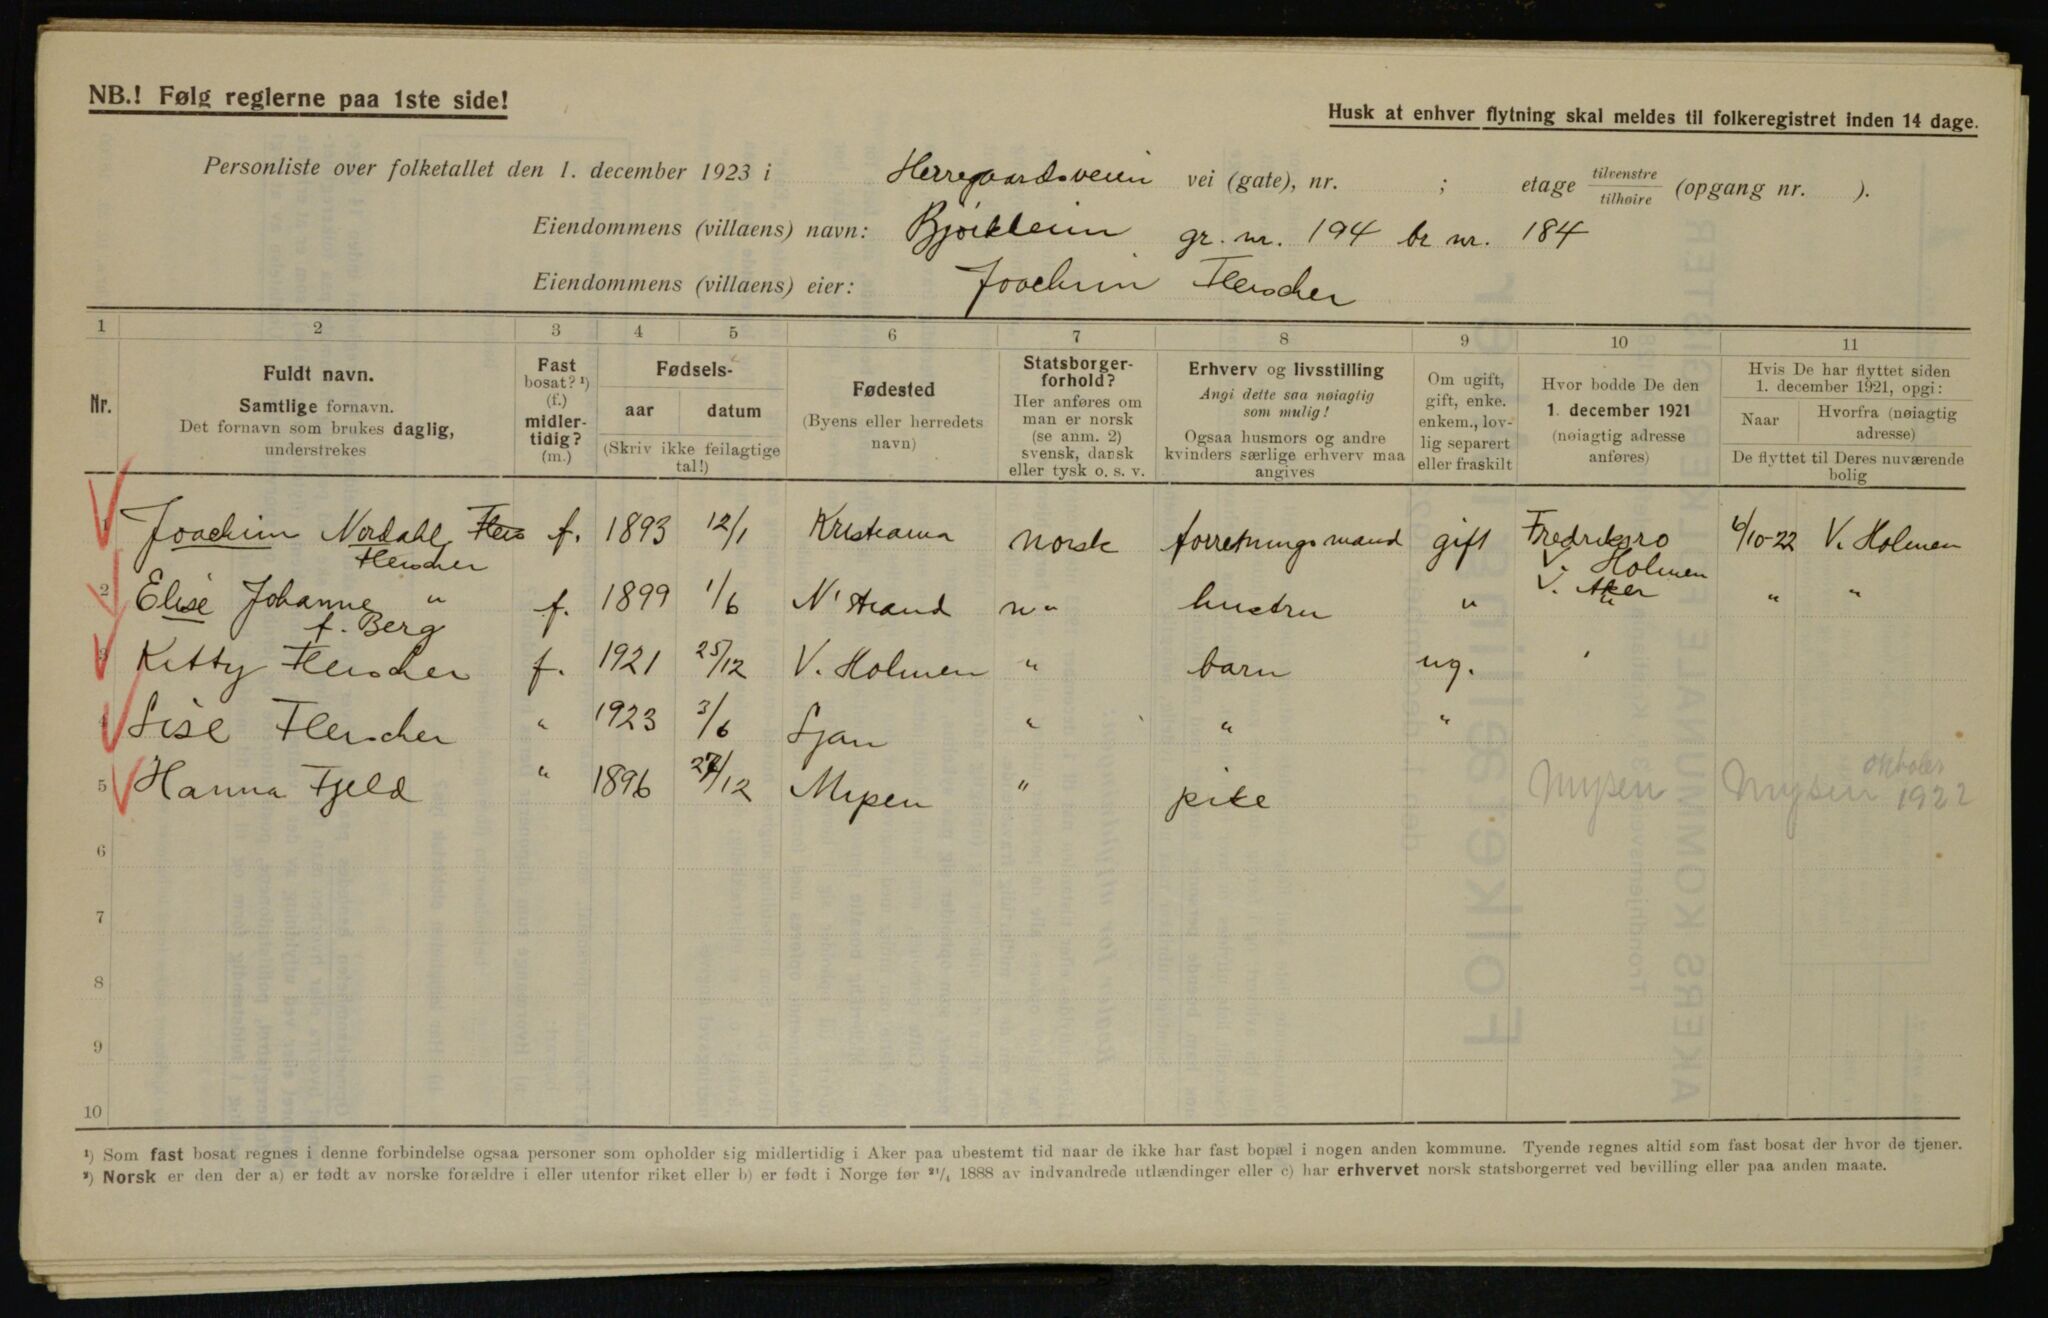 NB.! Følg reglerne paa 1ste side!
Husk at enhver flytning skal meldes til folkeregistret inden 14 dage.
Personliste over folketallet den 1. december 1923 i Herregaardsveien vei (gate), nr. ; etage tilvenstre/tilhøire (opgang nr. ).
Eiendommens (villaens) navn: Bjørkheim gr. nr. 194 br nr. 184
Eiendommens (villaens) eier: Joachim Fleischer
1 2 3 4 5 6 7 8 9 10 11
Nr.
Fuldt navn.
Samtlige fornavn.
Det fornavn som brukes daglig,
understrekes
Fast
bosat? ¹)
(f.)
midler-
tidig?
(m.)
Fødsels-
aar datum
(Skriv ikke feilagtige
tal!)
Fødested
(Byens eller herredets
navn)
Statsborger-
forhold?
Her anføres om
man er norsk
(se anm. 2)
svensk, dansk
eller tysk o. s. v.
Erhverv og livsstilling
Angi dette saa nøiagtig
som mulig!
Ogsaa husmors og andre
kvinders særlige erhverv maa
angives
Om ugift,
gift, enke.
enkem., lov-
lig separert
eller fraskilt
Hvor bodde De den
1. december 1921
(nøiagtig adresse
anføres)
Hvis De har flyttet siden
1. december 1921, opgi:
Naar Hvorfra (nøiagtig
adresse)
De flyttet til Deres nuværende
bolig
1 Joachim Nordahl Fleis f. 1893 12/1 Kristiania norsk forretningsmand gift Fredriksro 6/10-22 V. Holmen
Fleischer V. Holmen
2 Elise Johanne " f. 1899 1/6 N' strand n " hustru " V. Aker " "
f. Berg "
3 Kitty Fleischer f. 1921 25/12 V. Holmen " barn ug.
4 Lise Fleischer " 1923 3/6 Ljan " " "
5 Hanna Fjeld " 1896 27/12 Mysen " pike Mysen Mysen oktober
1922
6
7
8
9
10
¹) Som fast bosat regnes i denne forbindelse ogsaa personer som opholder sig midlertidig i Aker paa ubestemt tid naar de ikke har fast bopæl i nogen anden kommune. Tyende regnes altid som fast bosat der hvor de tjener.
²) Norsk er den der a) er født av norske forældre i eller utenfor riket eller b) er født i Norge før ²¹/₄ 1888 av indvandrede utlændinger eller c) har erhvervet norsk statsborgerret ved bevilling eller paa anden maate.